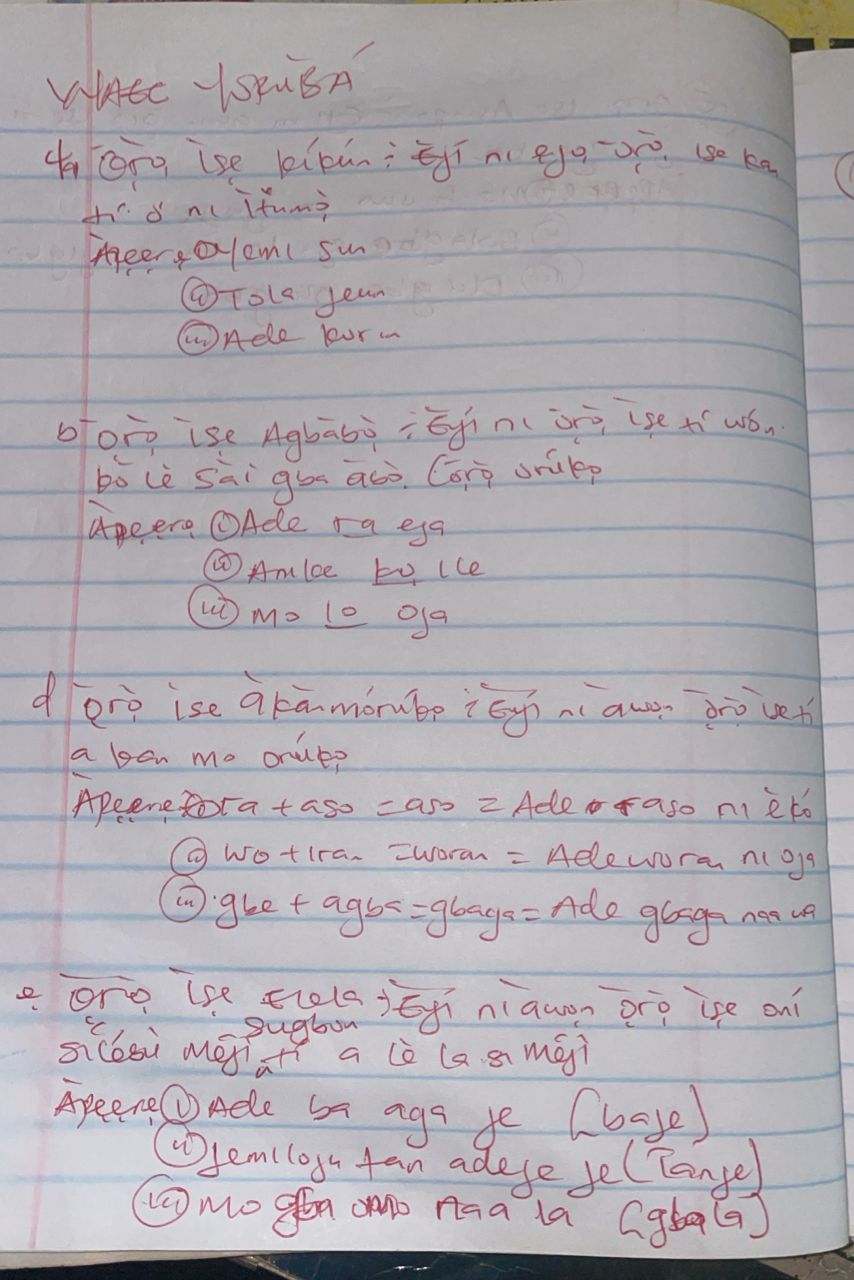 WAEC YORÙBÁ
4a Ọ̄rọ̀ ìṣe kíkún : Èyí ni ẹja ọ̄rọ̀ ìse kan
tí ó ní ìtumọ̀
Àpẹẹrẹ Yemi sun
(ii) Tola jeun
(iii) Ade korin
b Ọ̄rọ̀ ìṣe Agbàbọ̀ : Èyí ni ọ̀rọ̀ ìṣe tí wón
bò lè sài gba àbò. (ọ̀rọ̀ orúkọ
Àpẹẹrẹ (i) Ade ra eja
(ii) Anike kọ ile
(iii) Mo lo oja
d Ọ̄rọ̀ ìse àkànmórúkọ : Èyí ni àwọn ọ̀rọ̀ ìse tí
a kan mo orúkọ
Àpẹẹrẹ ra + aso = aso = Ade raso ni èkó
(ii) wo + iran = woran = Ade woran ni oja
(iii) gbe + agba = gbaga = Ade gbaga naa wa
e Ọ̄rọ̀ ìṣe Elela : Èyí ni àwọn ọ̀rọ̀ ìṣe oní
sílésù méjì sugbon tí a lè la sí méjì
Àpẹẹrẹ (i) Ade ba aga je [baje]
(ii) Jemiloju tan adeje je (Tanje)
(iii) Mo gba omo naa la [gbala]